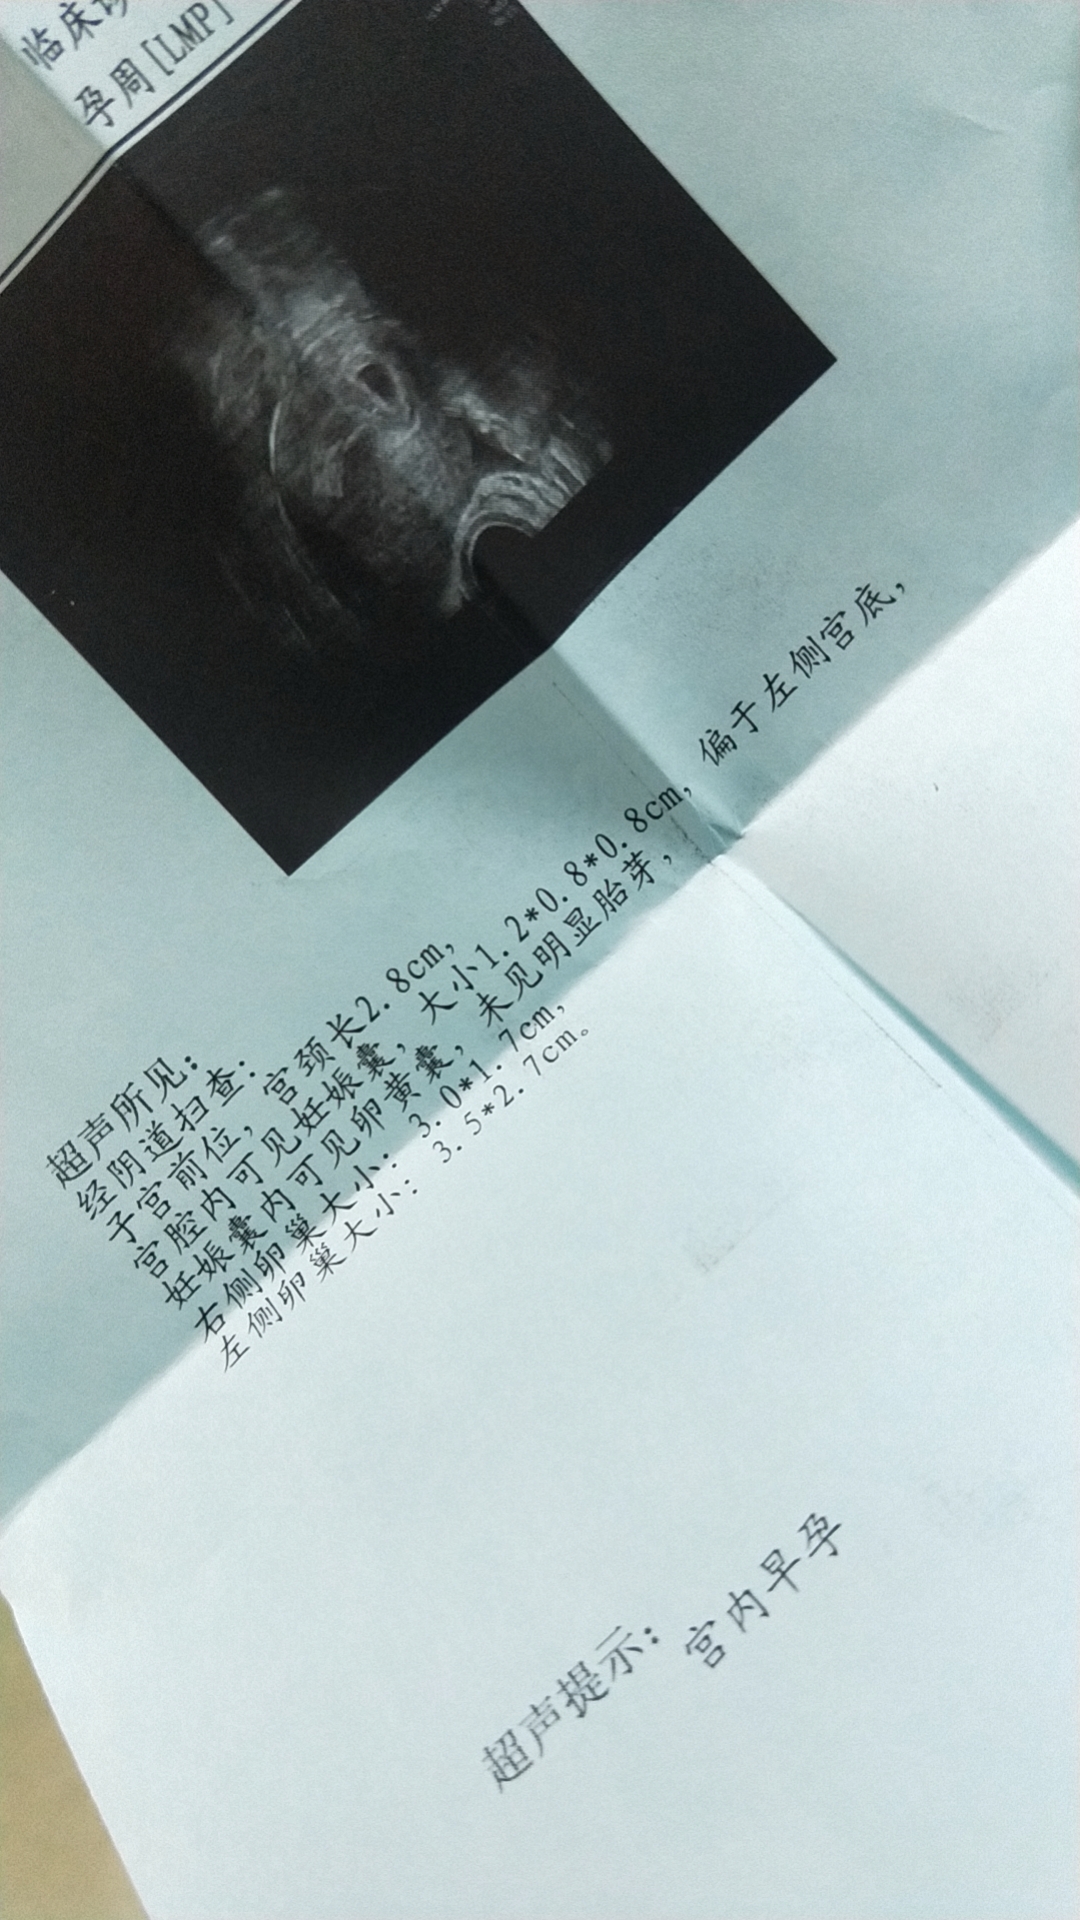 临床诊
孕周[LMP]
超声所见:
经阴道扫查:
子宫前位, 宫颈长2.8cm,
宫腔内可见妊娠囊, 大小1.2*0.8*0.8cm, 偏于左侧宫底,
妊娠囊内可见卵黄囊, 未见明显胎芽,
右侧卵巢大小: 3.0*1.7cm,
左侧卵巢大小: 3.5*2.7cm。
超声提示:
宫内早孕